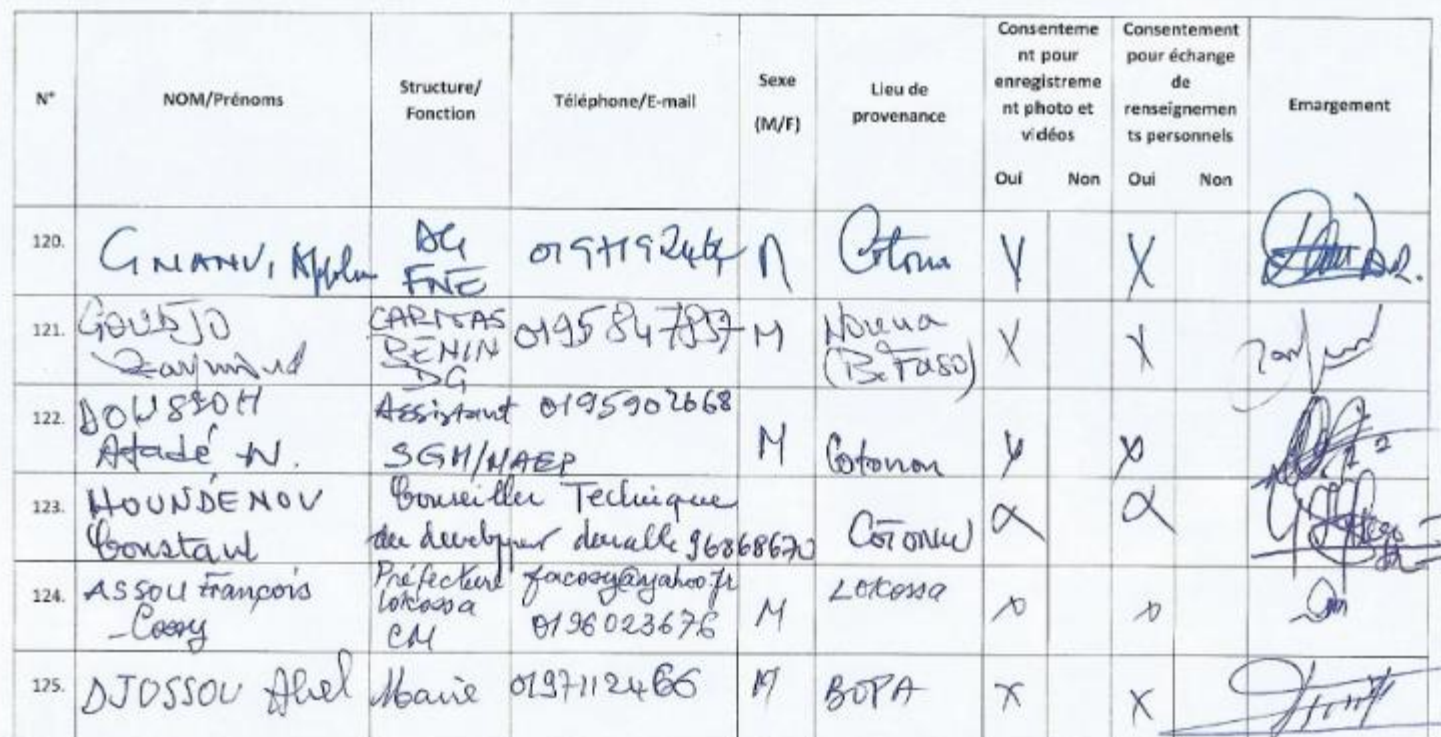 N° NOM/Prénoms Structure/ Fonction Téléphone/E-mail Sexe (M/F) Lieu de provenance Consenteme nt pour enregistreme nt photo et vidéos Consentement pour échange de renseignemen ts personnels Emargement
Oui Non Oui Non
120. GNANVI DG FNE M Cotonou X X
121. GOUDJO Raymond CARITAS BENIN DG 0195847857 M (B. Faso) X X
122. DOUSSOH Atadé N. Assistant SGM/MAEP 0195902668 M Cotonou X X
123. HOUNDENOU Constant Conseiller Technique au 96868670 Cotonou X X
124. ASSOU François Cossy Préfecture Lokossa CM facossy@yahoo.fr 0196023676 M Lokossa X X
175. DJOSSOU Abel Maire 0197112466 M BOPA X X